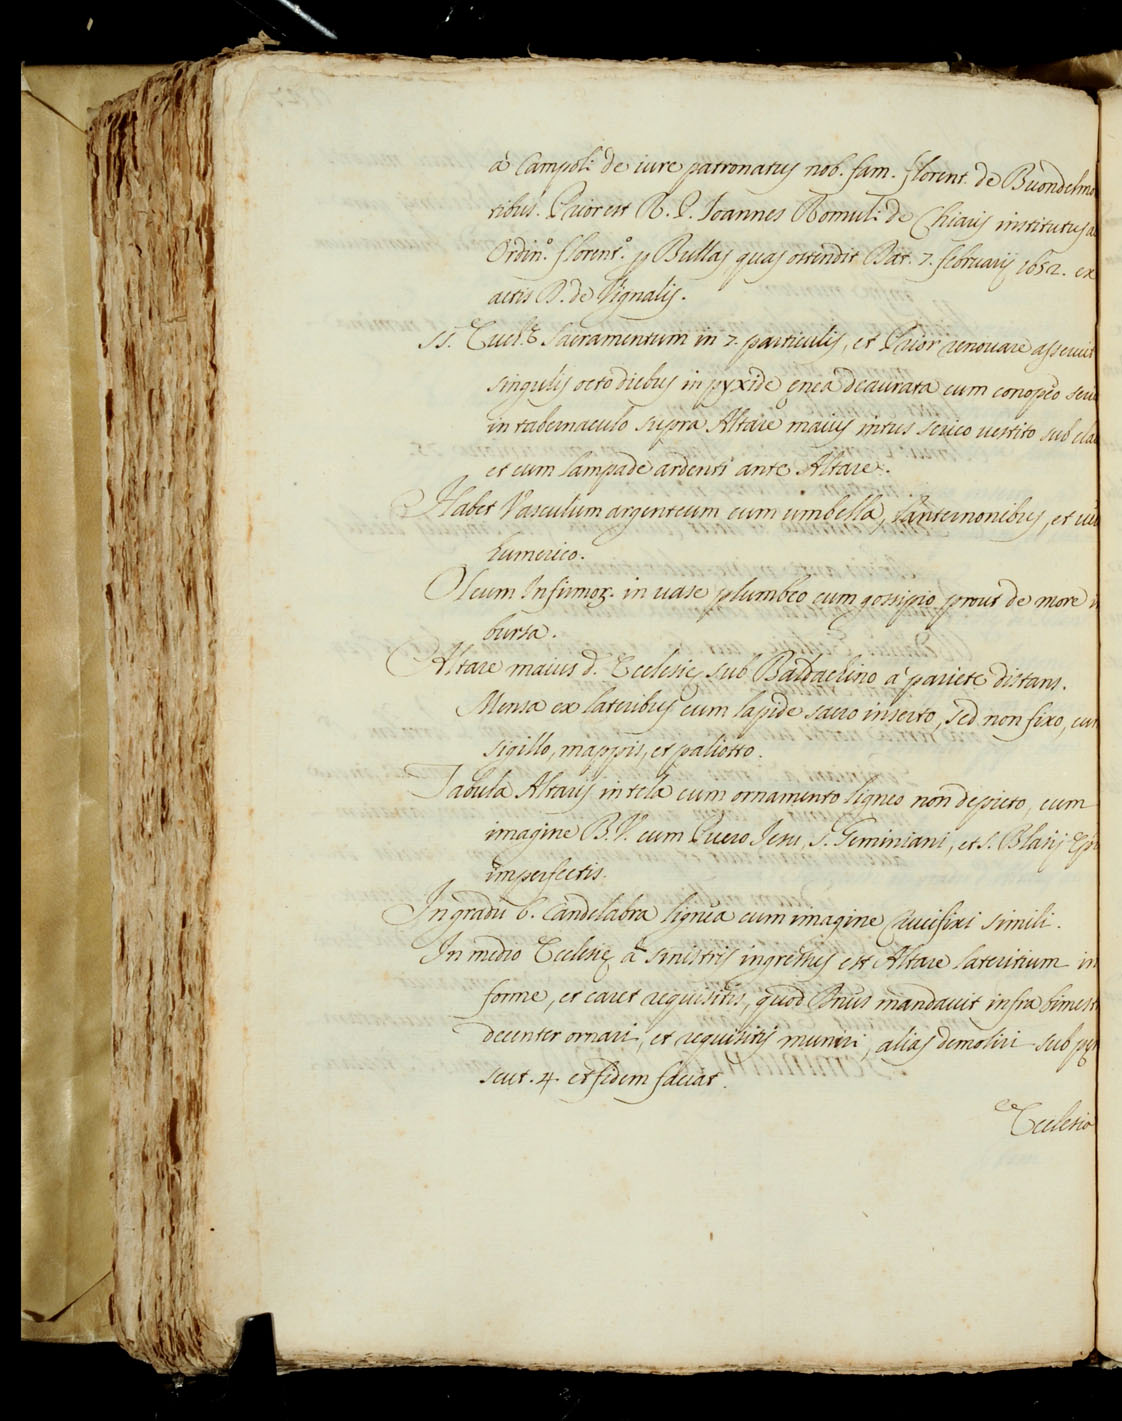 à Campoli: de iure patronatus nob. fam. florent. de Buondelmo
tibus. Prior est R. P. Ioannes Romul: de Chiaris institutus a
Ordin.º florent.º p Bullas, quas ostendit Dat. 7. februarij 1652. ex
actis D. de Vignalis.
SS. Euch.ę Sacramentum in 7. particulis, et Prior renouare asseruit
singulis octo diebus in pyxide ęnea deaurata cum conopęo
in tabernaculo supra Altare maius intus serico vestito sub cla
et cum lampade ardenti ante Altare.
Habet Vasculum argenteum cum umbella, lanternonibus, et
humerico.
Oleum Infirmoꝝ. in uase plumbeo cum gossipio prout de more
bursa.
Altare maius d. Ecclesię sub Baldachino à pariete distans.
Mensa ex lateribus cum lapide sacro inserto, sed non fixo, cum
sigillo, mappis, et paliotto.
Tabula Altaris in tela cum ornamento ligneo non depicto, cum
imagine B. V. cum Puero Iesu, S. Geminiani, et S. Blasij
imperfectis.
In gradu 6. Candelabra lignea cum imagine Crucifixi simili.
In medio Ecclesię à sinistris ingressus est Altare lateritium in
forme, et caret requisitis, quod Dnus mandauit infra bimest
decenter ornari, et requisitis muniri, alias demoliri sub
scut. 4. et fidem faciat.
Ecclesia